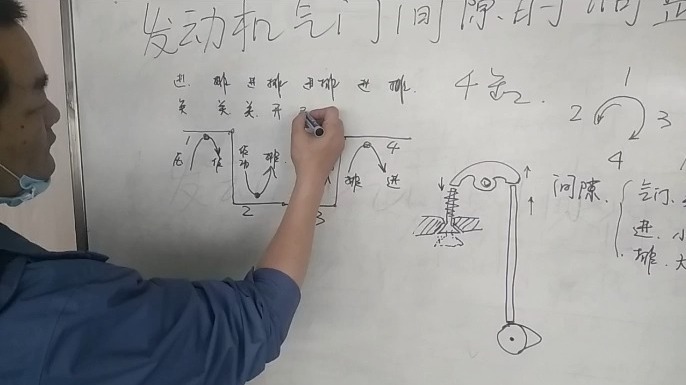 发动机气门间隙的调整
进 排 进排 进排 进 排
关 关 关 开
4缸
1
2 3
4
1 4
压 作
作功 排
排 进
2 3
间隙 气门
进 小
排 大